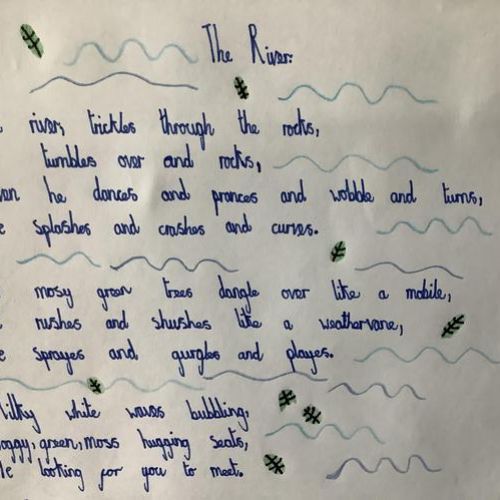 The River.
river, trickles through the rocks,
tumbles over and rocks,
he dances and prances and wobble and turns,
splashes and crashes and curves.
mosy green trees dangle over like a mobile,
rushes and shushes like a weathervane,
sprayes and gurgles and playes.
white waves bubbling,
green, moss hugging seats,
looking for you to meet.